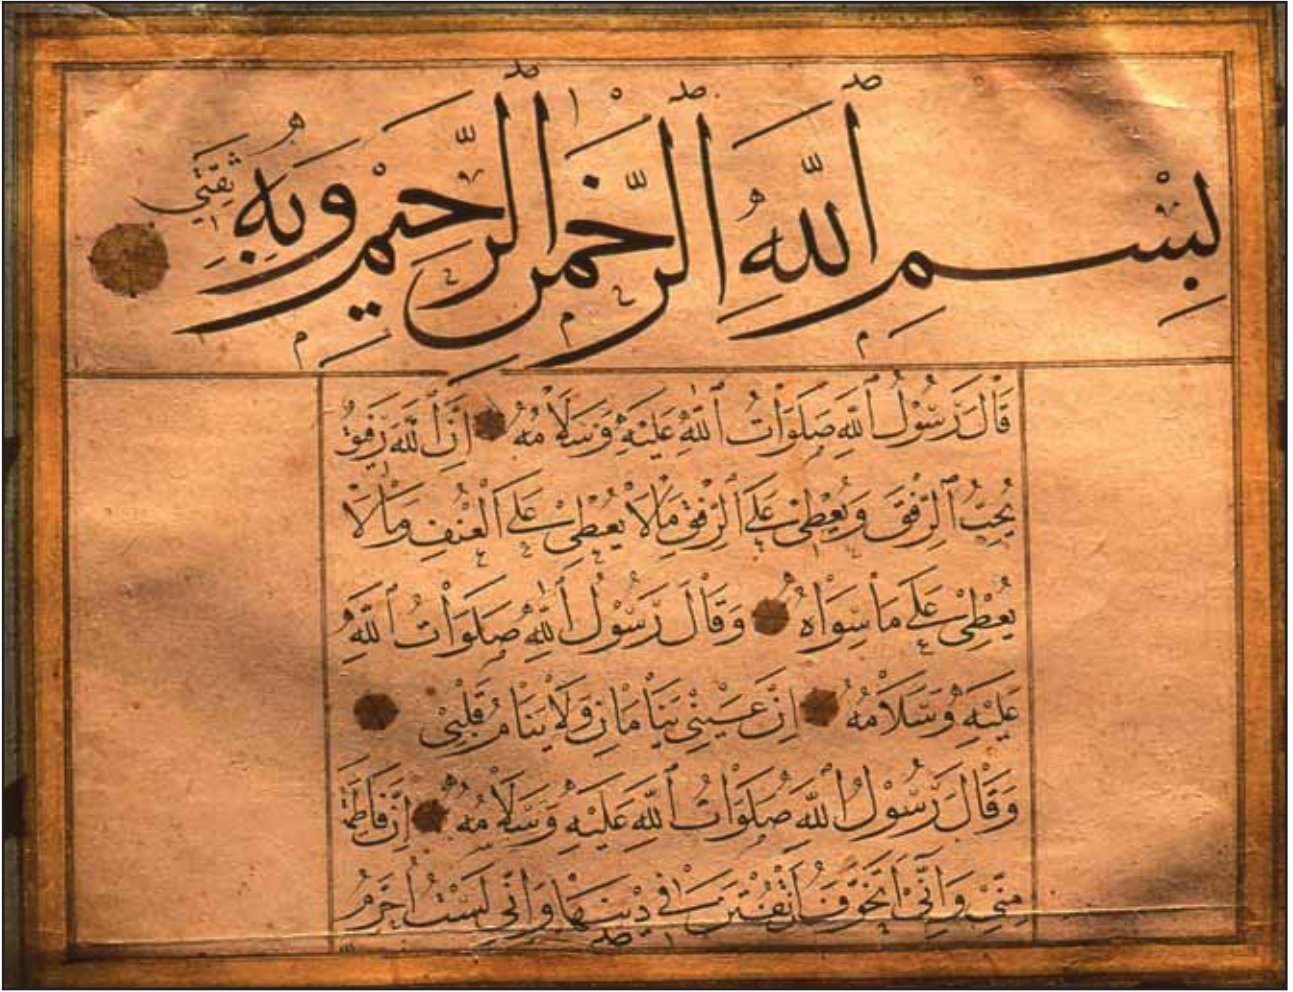 بِسْمِ اللَّهِ الرَّحْمٰنِ الرَّحِيْمِ وَبِهِ ثِقَتِي
قَالَ رَسُوْلُ اللَّهِ صَلَوَاتُ اللَّهِ عَلَيْهِ وَسَلَامُهُ إِنَّ اللَّهَ رَفِيْقٌ
يُحِبُّ الرِّفْقَ وَيُعْطِيْ عَلَى الرِّفْقِ مَا لَا يُعْطِيْ عَلَى الْعُنْفِ وَمَا لَا
يُعْطِيْ عَلَى مَا سِوَاهُ وَقَالَ رَسُوْلُ اللَّهِ صَلَوَاتُ اللَّهِ
عَلَيْهِ وَسَلَامُهُ إِنَّ عَيْنَيَّ يَنَامَانِ وَلَا يَنَامُ قَلْبِيْ
وَقَالَ رَسُوْلُ اللَّهِ صَلَوَاتُ اللَّهِ عَلَيْهِ وَسَلَامُهُ إِنَّ فَاطِمَةَ
مِنِّيْ وَإِنِّيْ أَتَخَوَّفُ أَنْ تُفْتَنَ فِيْ دِيْنِهَا وَإِنِّيْ لَسْتُ أُحَرِّمُ